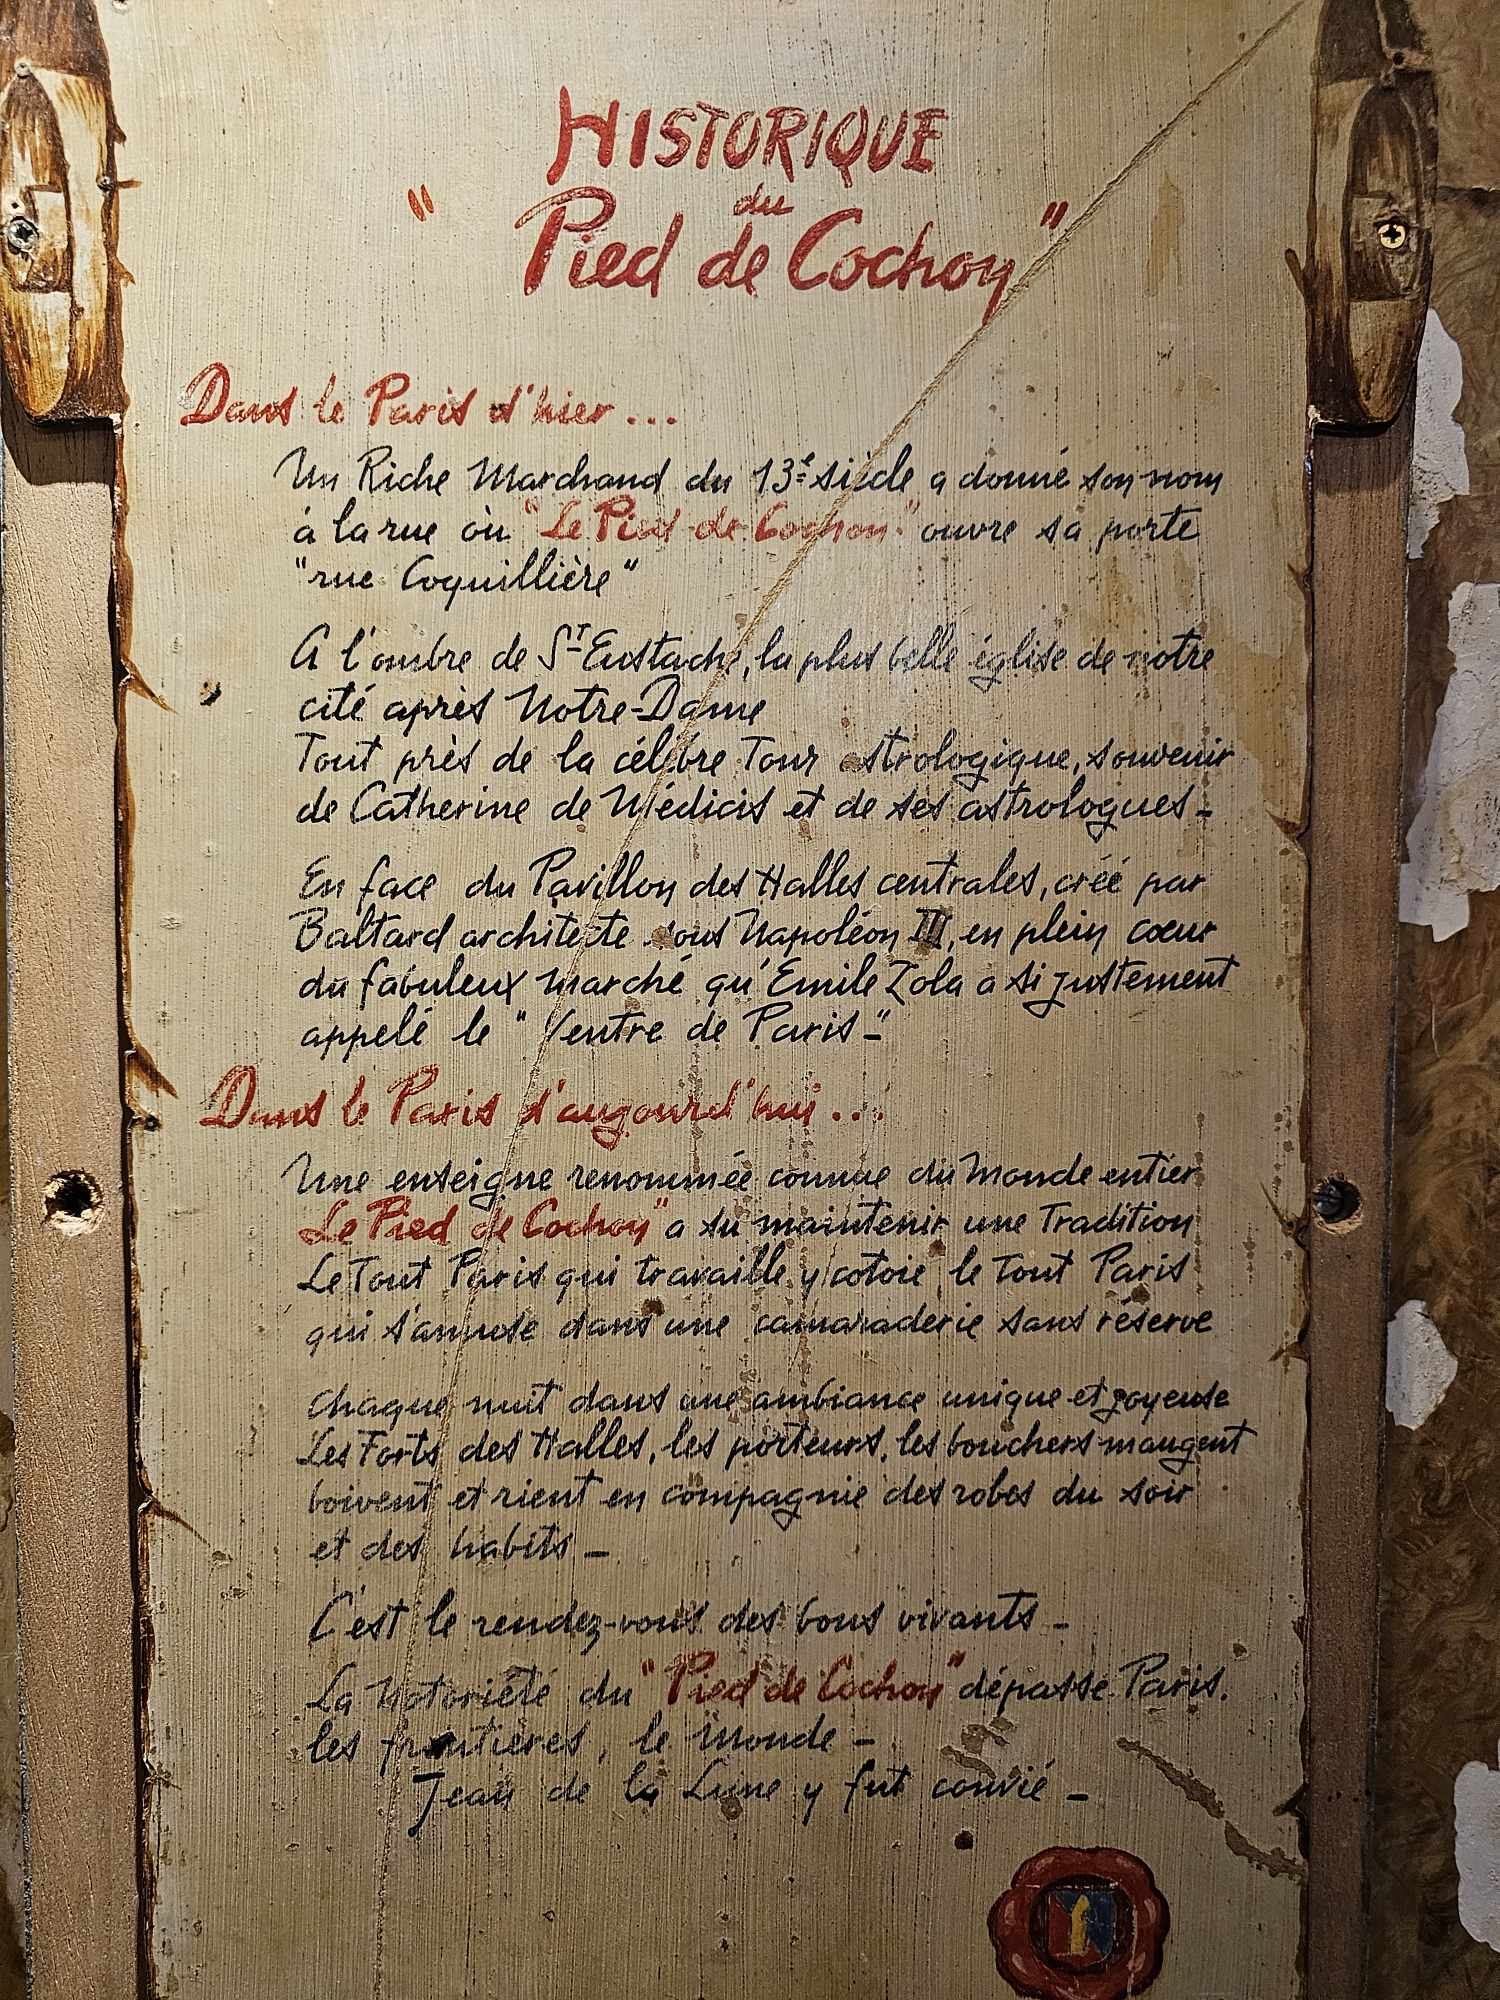 HISTORIQUE
du
"Pied de Cochon"
Dans le Paris d'hier...
Un Riche Marchand du 13e siècle a donné son nom
à la rue où "Le Pied de Cochon" ouvre sa porte
"rue Coquillière"
A l'ombre de ST Eustache, la plus belle église de notre
cité après Notre-Dame
Tout près de la célèbre Tour astrologique, souvenir
de Catherine de Médicis et de ses astrologues-
En face du Pavillon des Halles centrales, créé par
Baltard architecte sous Napoléon III, en plein cœur
du fabuleux marché qu'Emile Zola a si justement
appelé le "Ventre de Paris-"
Dans le Paris d'aujourd'hui...
Une enseigne renommée connue du Monde entier
Le Pied de Cochon" a su maintenir une Tradition
Le Tout Paris qui travaille y cotoie le Tout Paris
qui s'amuse dans une camaraderie sans réserve
Chaque nuit dans une ambiance unique et joyeuse
Les Forts des Halles, les porteurs, les bouchers mangent
boivent et rient en compagnie des robes du soir
et des habits-
C'est le rendez-vous des bons vivants-
La Notoriété du "Pied de Cochon" dépasse Paris.
les frontières, le Monde-
Jean de la Lune y fut convié-